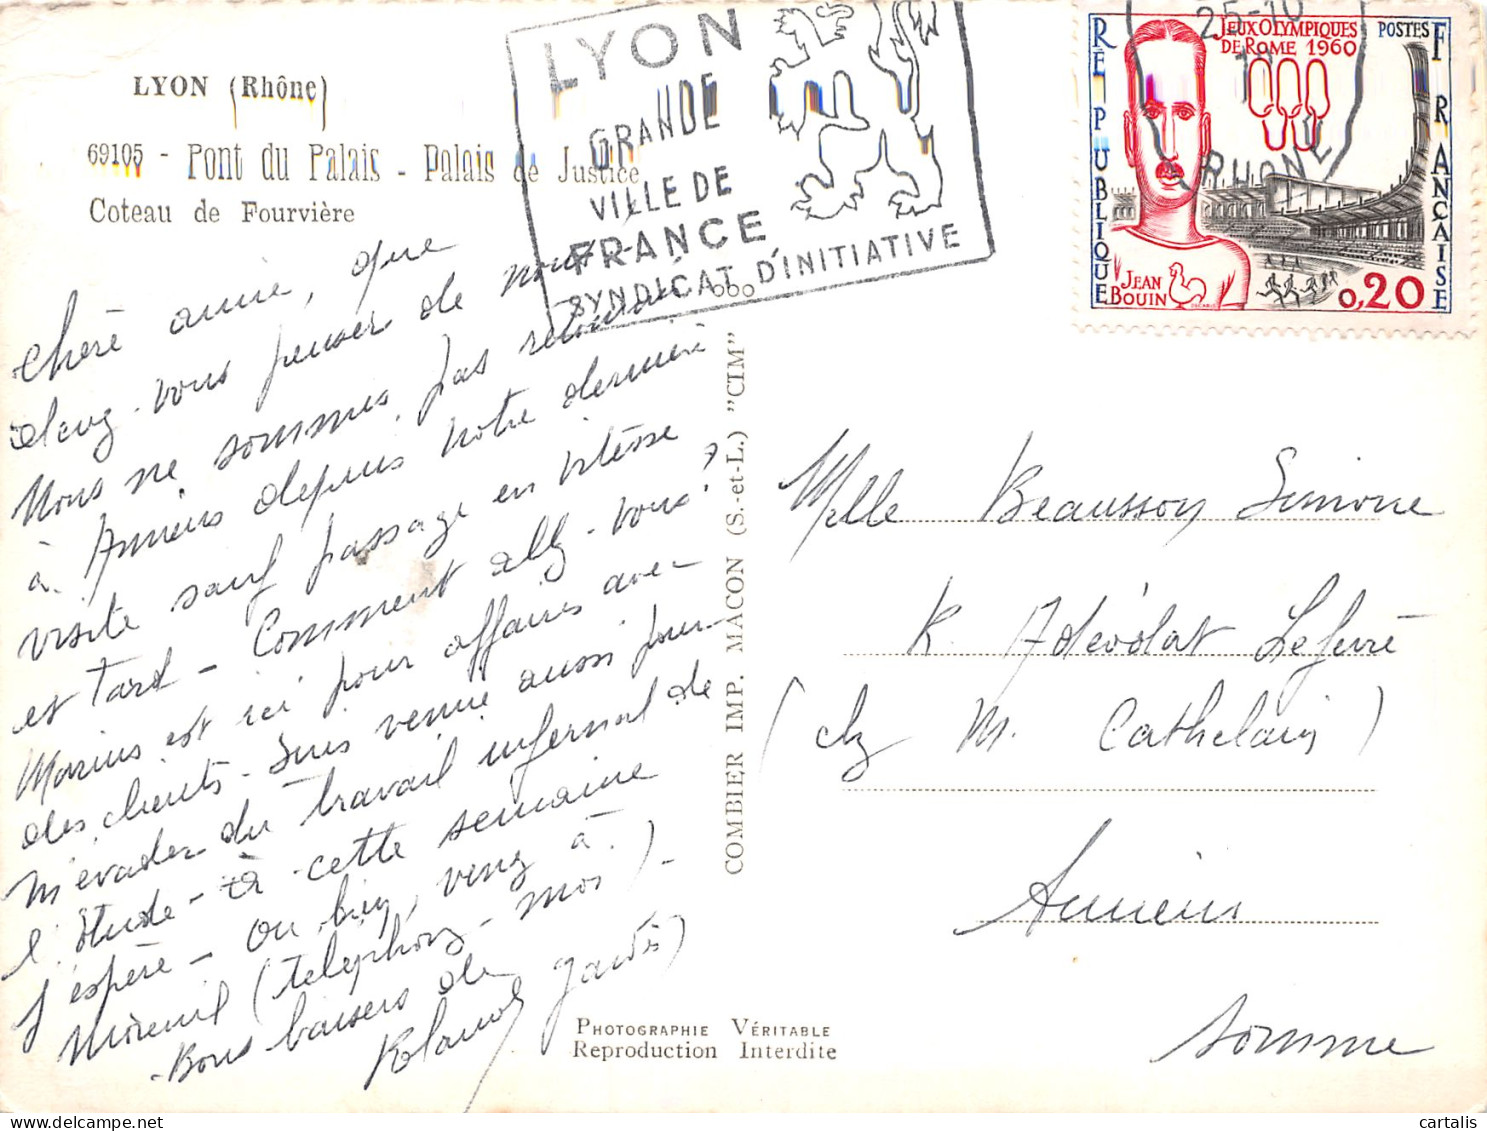 LYON (Rhône)
69105 - Pont du Palais - Palais de Justice
Coteau de Fourvière
LYON
GRANDE
VILLE DE
FRANCE
SYNDICAT D'INITIATIVE
25-10
RHONE
RÉPUBLIQUE
FRANÇAISE
JEUX OLYMPIQUES
DE ROME 1960
POSTES
JEAN
BOUIN
0,20
Chère amie, que
devez-vous penser de nous
Nous ne sommes pas
à Amiens depuis notre dernière
visite sauf passage en vitesse
et tard - Comment allez-vous?
Marius est ici pour affaires avec
des clients. Suis venue aussi pour
m'évader du travail infernal de
l'étude - à cette semaine
j'espère - Ou bien, venez à
Moreuil (telephonez-moi) -
Bons baisers de
COMBIER IMP. MACON (S.-et-L.) "CIM"
Melle Beaussoy Simone
R. Adéodat Lefèvre
(chez M. Cathelain)
Amiens
Somme
PHOTOGRAPHIE VÉRITABLE
Reproduction Interdite
cartalis